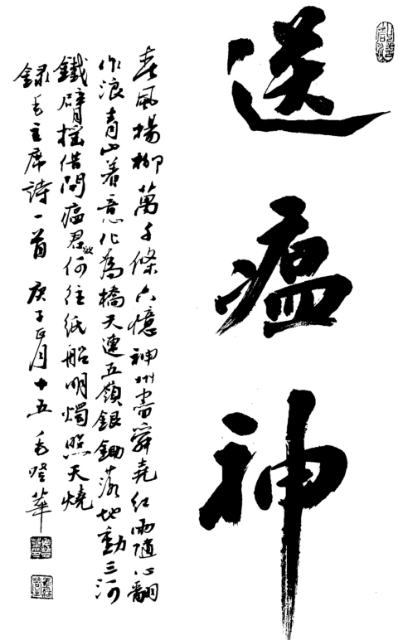 送瘟神
春風揚柳萬千條六憶神州盡舜堯紅雨隨心翻
作浪青山着意化為橋天連五嶺銀鋤落地動三河
鐵臂搖借問瘟君欲何往紙船明燭照天燒
録毛主席詩一首 庚子正月十五 毛登華